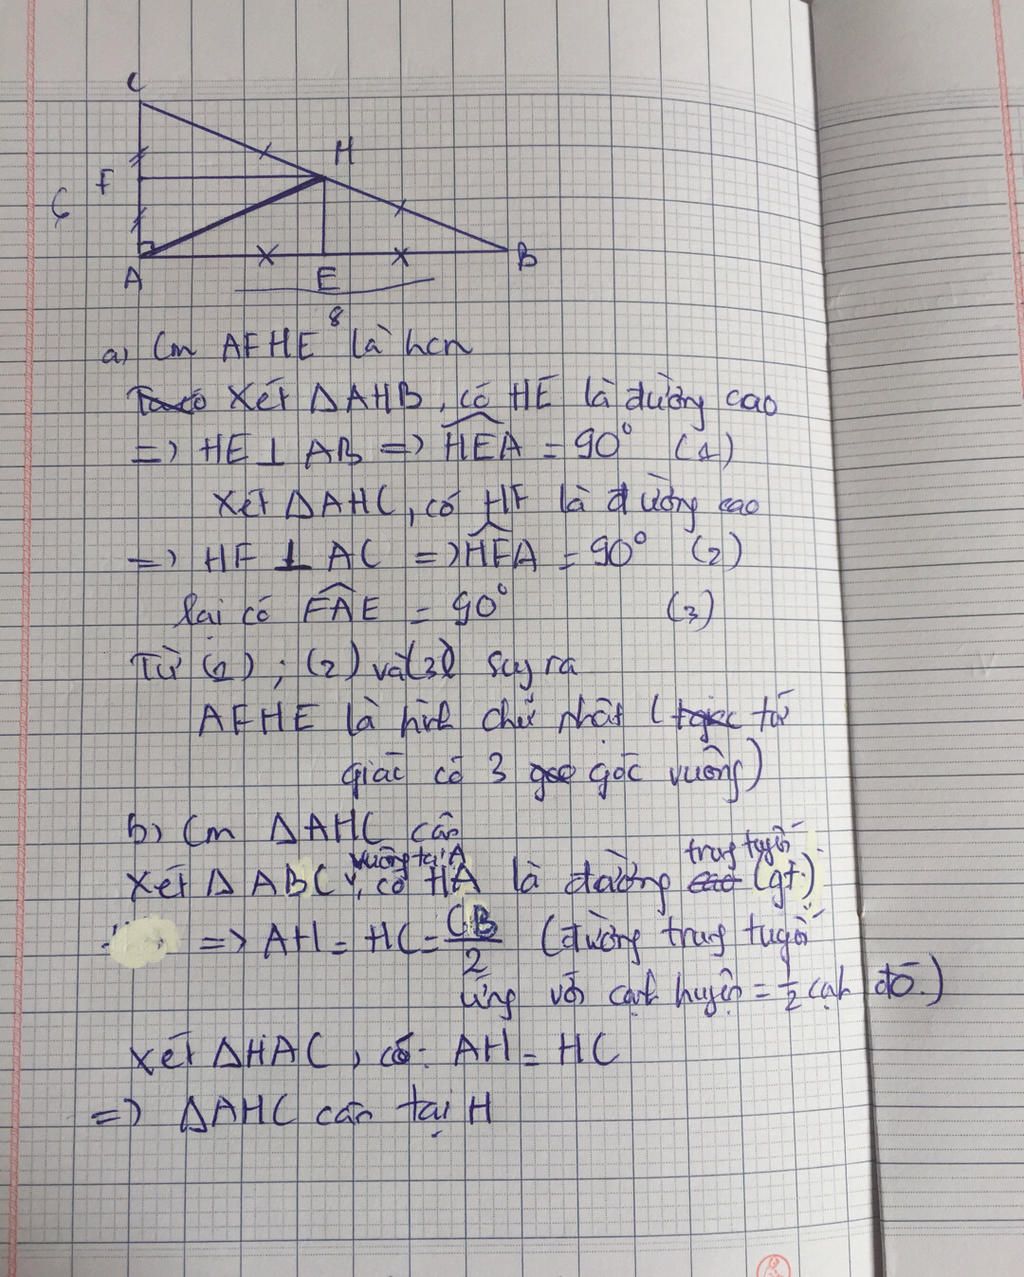 C
H
F
6
A
E
B
8
a) Cm AFHE là hcn
Ta có Xét ΔAHB, có HE là đường cao
=> HE ⊥ AB => HEA = 90° (1)
Xét ΔAHC, có HF là đường cao
=> HF ⊥ AC => HFA = 90° (2)
lại có FAE = 90° (3)
Từ (1); (2) và (3) suy ra
AFHE là hình chữ nhật ( tứ
giác có 3 góc vuông)
b) Cm ΔAHC cân
vuông tại A trung tuyến
Xét ΔABC, có HA là đường cao (gt)
=> AH = HC = CB/2 (đường trung tuyến
ứng với cạnh huyền = 1/2 cạnh đó.)
Xét ΔHAC, có: AH = HC
=> ΔAHC cân tại H